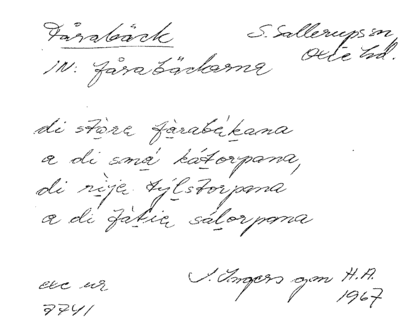 Fårabäck S. Sallerups sn,
Oxie hd.
IN: fårabäckarna
di stòra fàrabákana
a di små kátorpana,
di rìja týlstorpana
a di fàtia sálorpana
acc nr I. Ingers gm H.A.
7741 1967